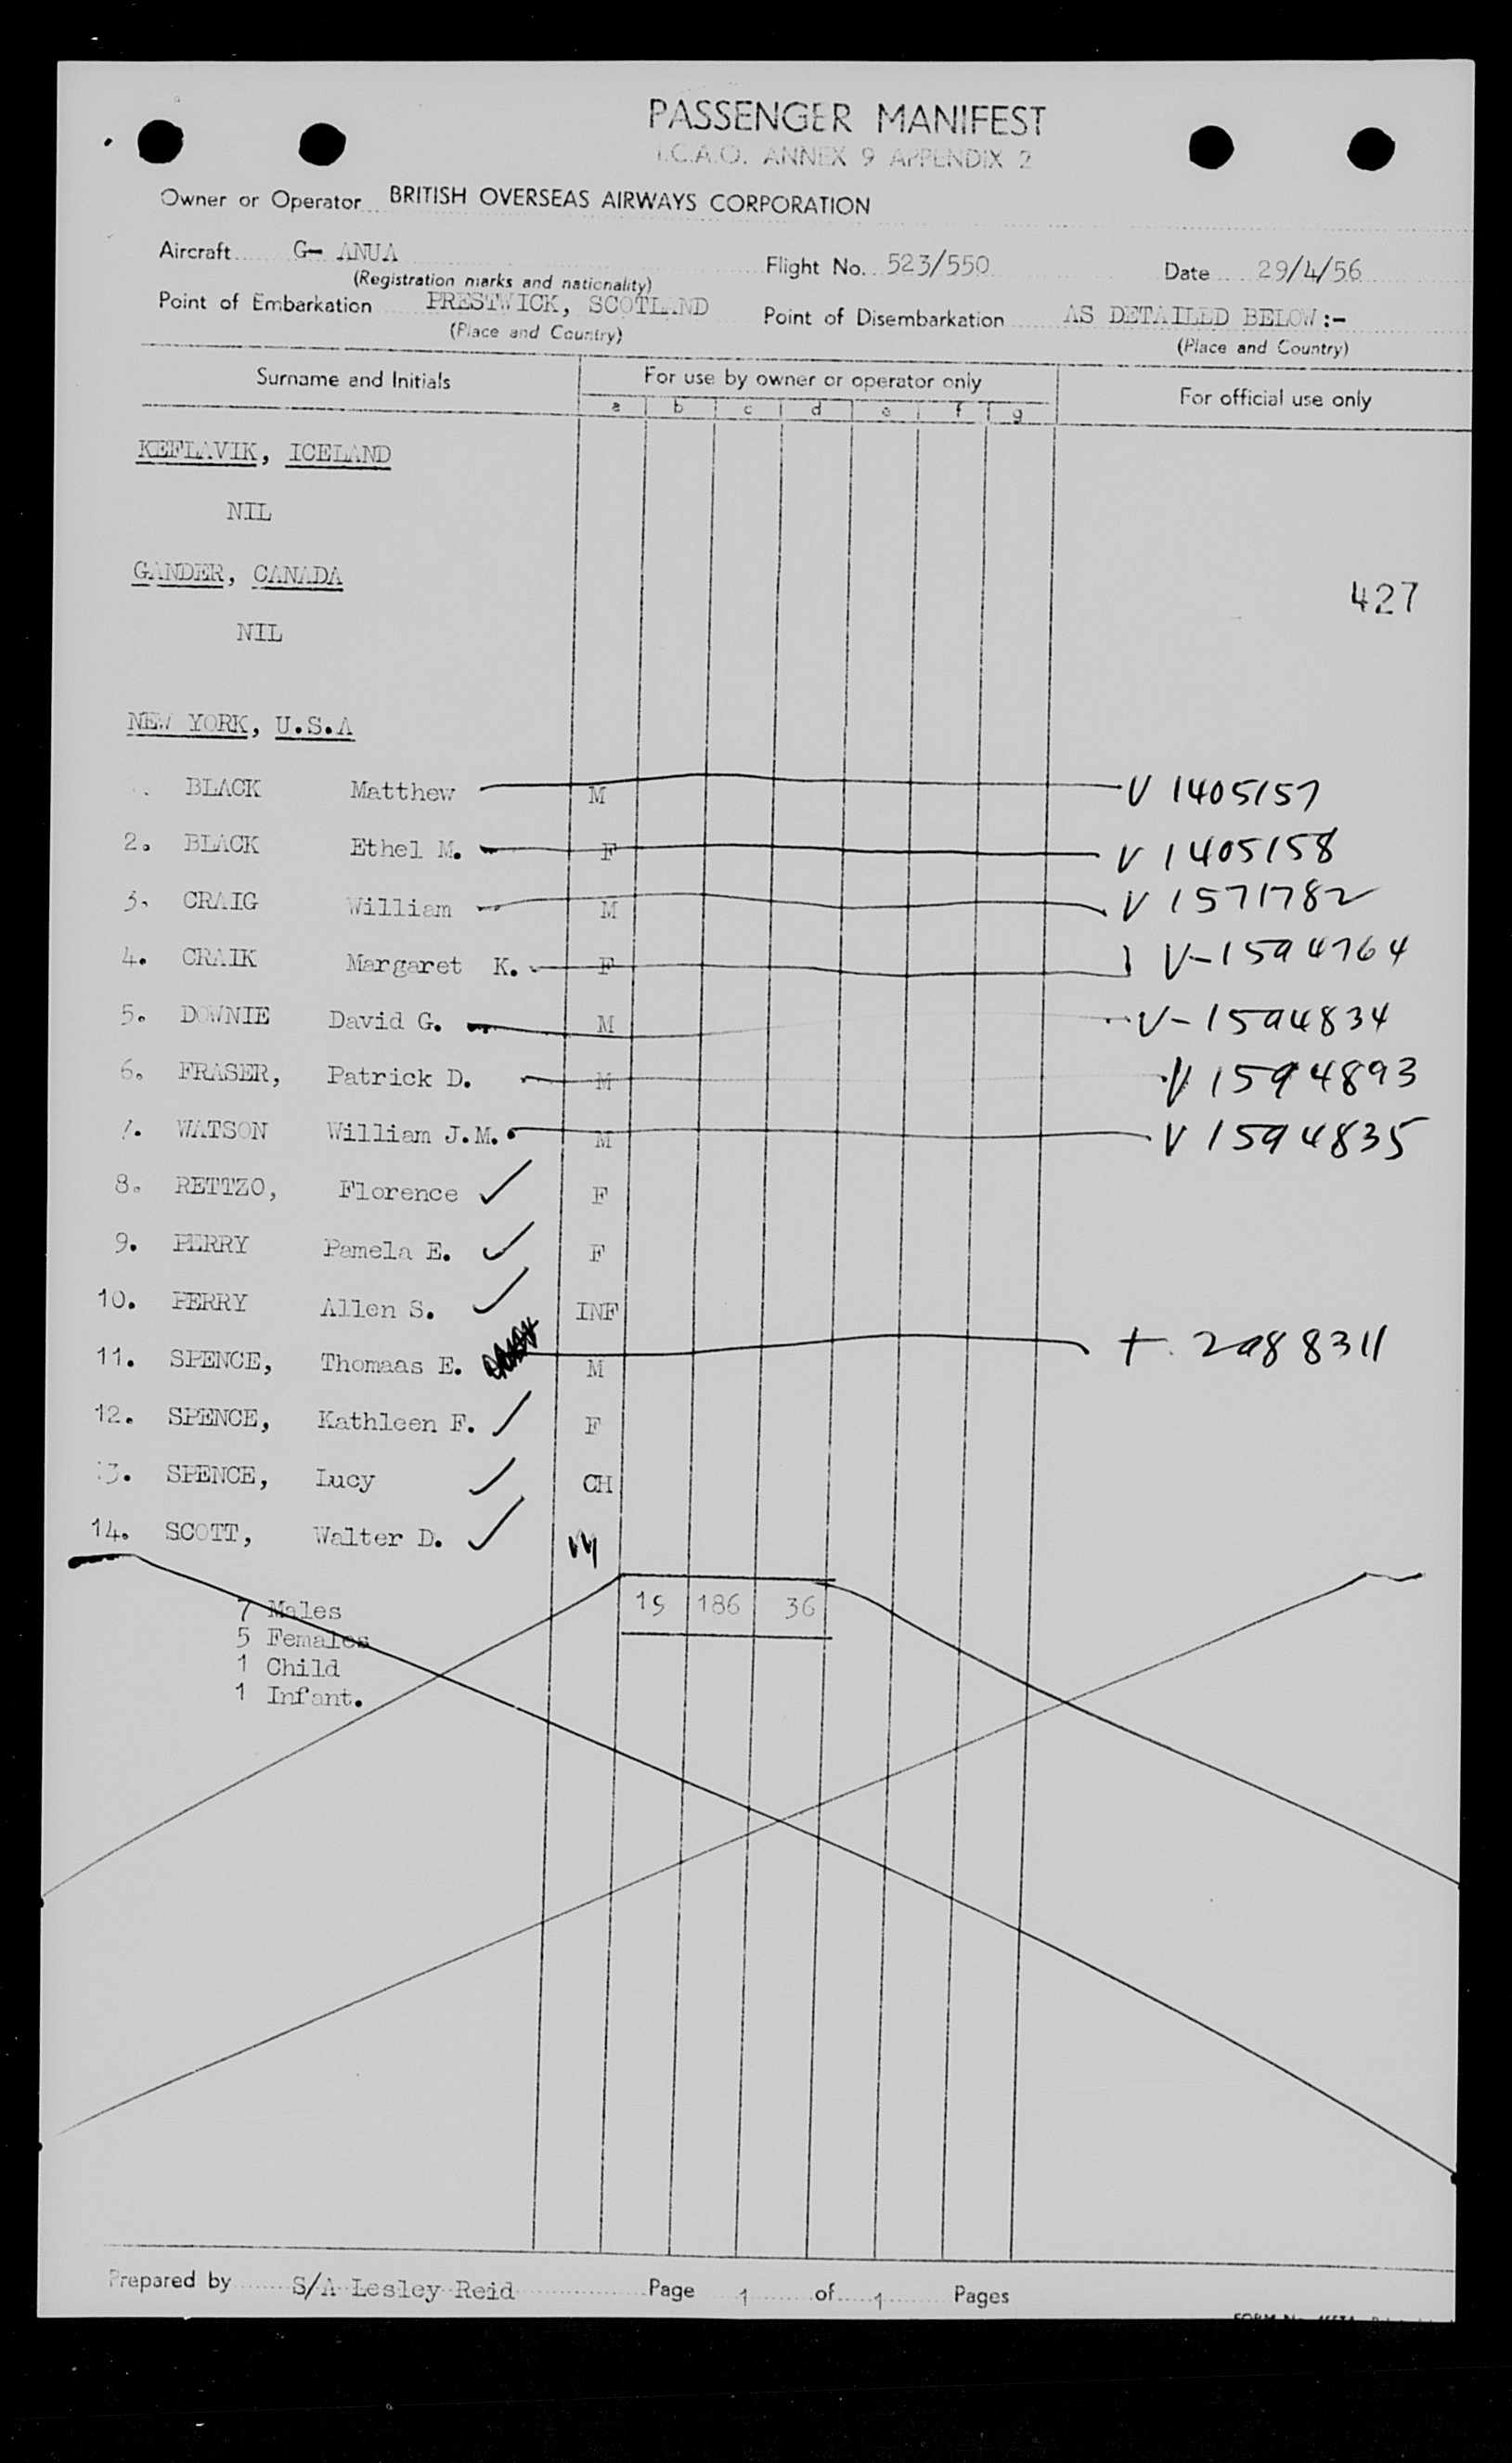 PASSENGER MANIFEST
I.C.A.O. ANNEX 9 APPENDIX 2
Owner or Operator BRITISH OVERSEAS AIRWAYS CORPORATION
Aircraft G- ANUA Flight No. 523/550 Date 29/4/56
(Registration marks and nationality)
Point of Embarkation PRESTWICK, SCOTLAND Point of Disembarkation AS DETAILED BELOW:-
(Place and Country) (Place and Country)
Surname and Initials For use by owner or operator only For official use only
a b c d e f g
KEFLAVIK, ICELAND
NIL
GANDER, CANADA
427
NIL
NEW YORK, U.S.A
BLACK Matthew M V 1405157
2. BLACK Ethel M. F V 1405158
3. CRAIG William M V 1571782
4. CRAIK Margaret K. F V-1594764
5. DOWNIE David G. M V-1594834
6. FRASER, Patrick D. M V 1594893
7. WATSON William J.M. M V 1594835
8. RETTZO, Florence ✓ F
9. PERRY Pamela E. ✓ F
10. PERRY Allen S. ✓ INF
11. SPENCE, Thomaas E. M + 2988311
12. SPENCE, Kathleen F. ✓ F
13. SPENCE, Lucy ✓ CH
14. SCOTT, Walter D. ✓ M
15 186 36
7 Males
5 Females
1 Child
1 Infant.
Prepared by S/A Lesley Reid Page 1 of 1 Pages